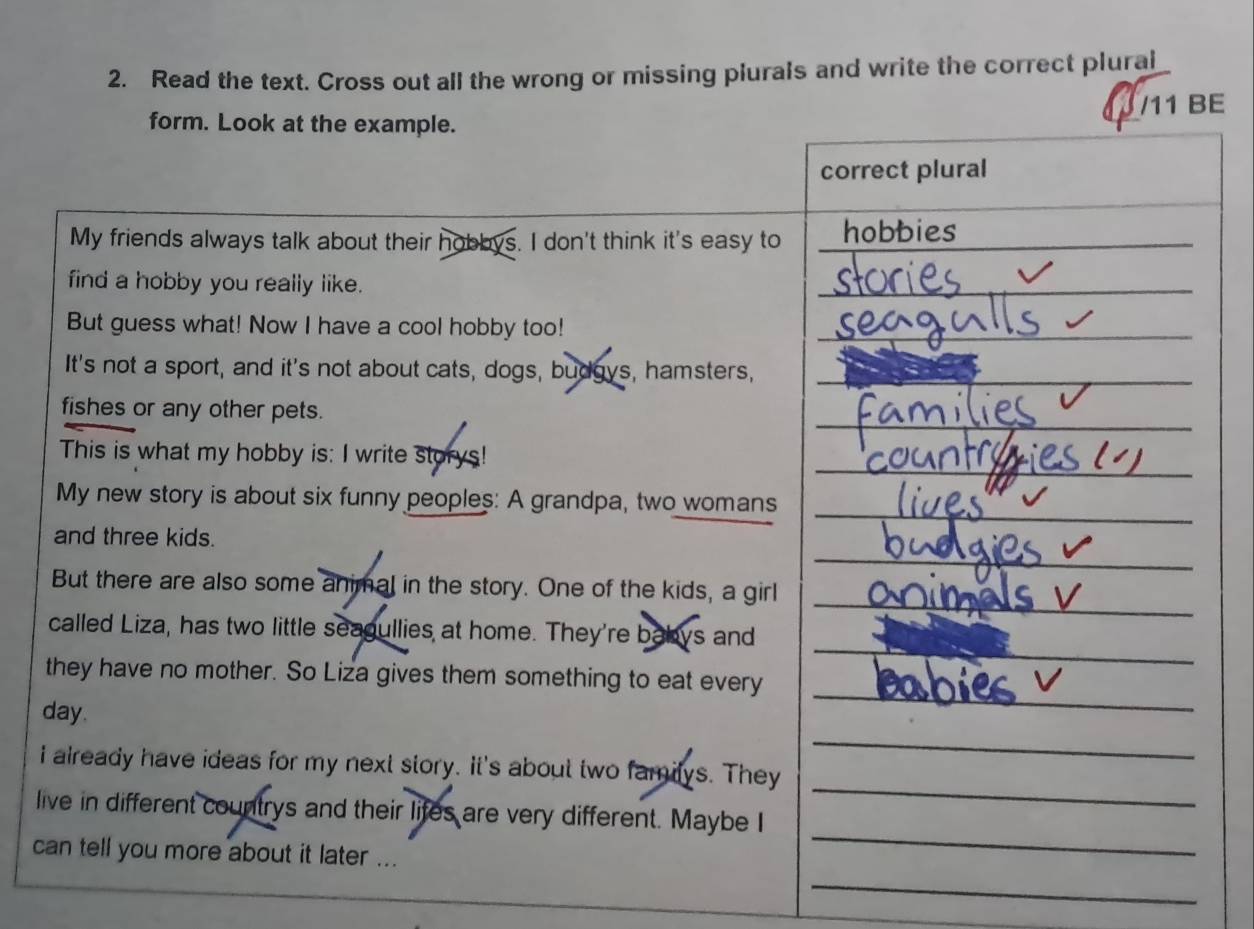 2. Read the text. Cross out all the wrong or missing plurals and write the correct plural
form. Look at the example.
/11 BE
correct plural
My friends always talk about their hobbys. I don't think it's easy to
hobbies
find a hobby you really like.
stories ✓
But guess what! Now I have a cool hobby too!
seagulls ✓
It's not a sport, and it's not about cats, dogs, budgys, hamsters,
fishes or any other pets.
families ✓
This is what my hobby is: I write storys!
countries (✓)
My new story is about six funny peoples: A grandpa, two womans
lives ✓
and three kids.
budgies ✓
But there are also some animal in the story. One of the kids, a girl
animals ✓
called Liza, has two little seagullies at home. They're babys and
they have no mother. So Liza gives them something to eat every
babies ✓
day.
I already have ideas for my next story. It's about two familys. They
live in different countrys and their lifes are very different. Maybe I
can tell you more about it later ...